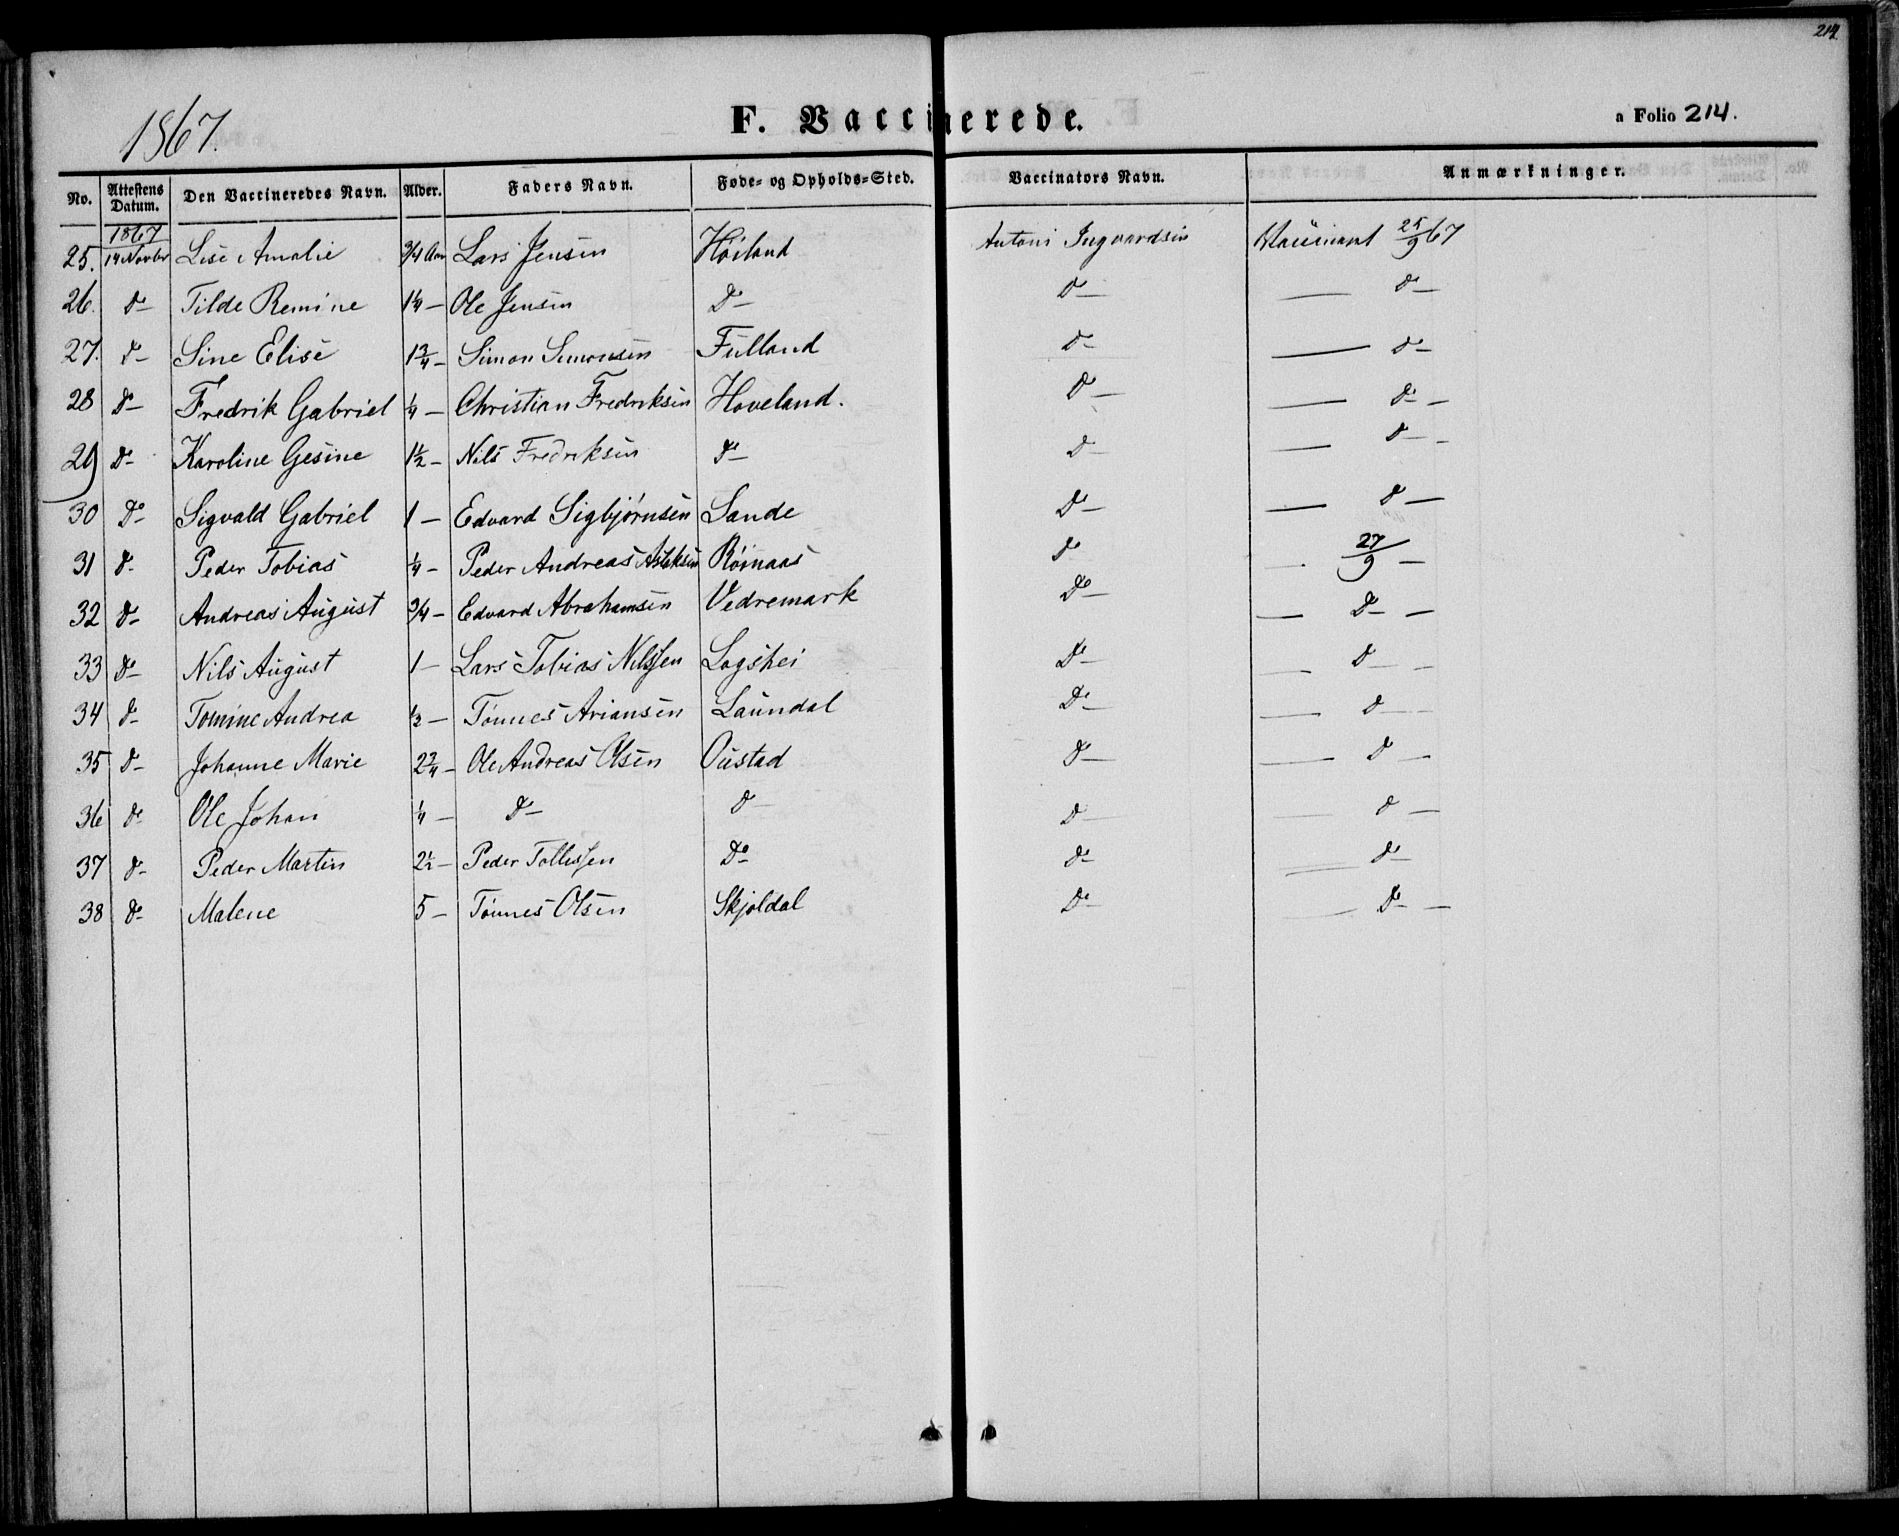 214
1867.
F. Vaccinerede.
a Folio 214.
No. | Attestens Datum. | Den Vaccineredes Navn. | Alder. | Faders Navn. | Føde- og Opholds-Sted. | Vaccinators Navn. | Anmærkninger.
1867
25. | 14 Novbr | Lise Amalie | 3/4 Aar | Lars Jensen | Høiland | Antoni Ingvardsen | 25/9 67
26. | Do | Tilde Remine | 1 1/4 — | Ole Jensen | Do — | Do — | — Do —
27. | Do | Sine Elise | 1 3/4 — | Simon Simonsen | Fulland | Do — | — Do —
28 | Do — | Fredrik Gabriel | 1/4 — | Christian Fredriksen | Hoveland. | Do — | — Do —
29 | Do — | Karoline Gesine | 1 1/2 — | Nils Fredriksen | Do — | Do — | — Do —
30 | Do — | Sigvald Gabriel | 1 — | Edvard Sigbjørnsen | Sande | Do — | — Do —
31 | Do | Peder Tobias | 1/4 — | Peder Andreas Aslaksen | Røinaas | Do | — 27/9 —
32 | Do — | Andreas August | 3/4 — | Edvard Abrahamsen | Vedremark | Do — | — Do —
33 | Do — | Nils August | 1 — | Lars Tobias Nilssen | Logshei | Do — | — Do —
34 | Do — | Tomine Andrea | 1/2 — | Tønnes Ariansen | Laundal | Do — | — Do —
35 | Do — | Johanne Marie | 2 3/4 — | Ole Andreas Olsen | Oustad | Do — | — Do —
36 | Do | Ole Johan | 1/4 — | Do — | Do | Do — | — Do —
37 | Do — | Peder Martin | 2 1/2 — | Peder Tollissen | Do | Do — | — Do —
38 | Do — | Malene | 5 — | Tønnes Olsen | Skjoldal | Do — | — Do —